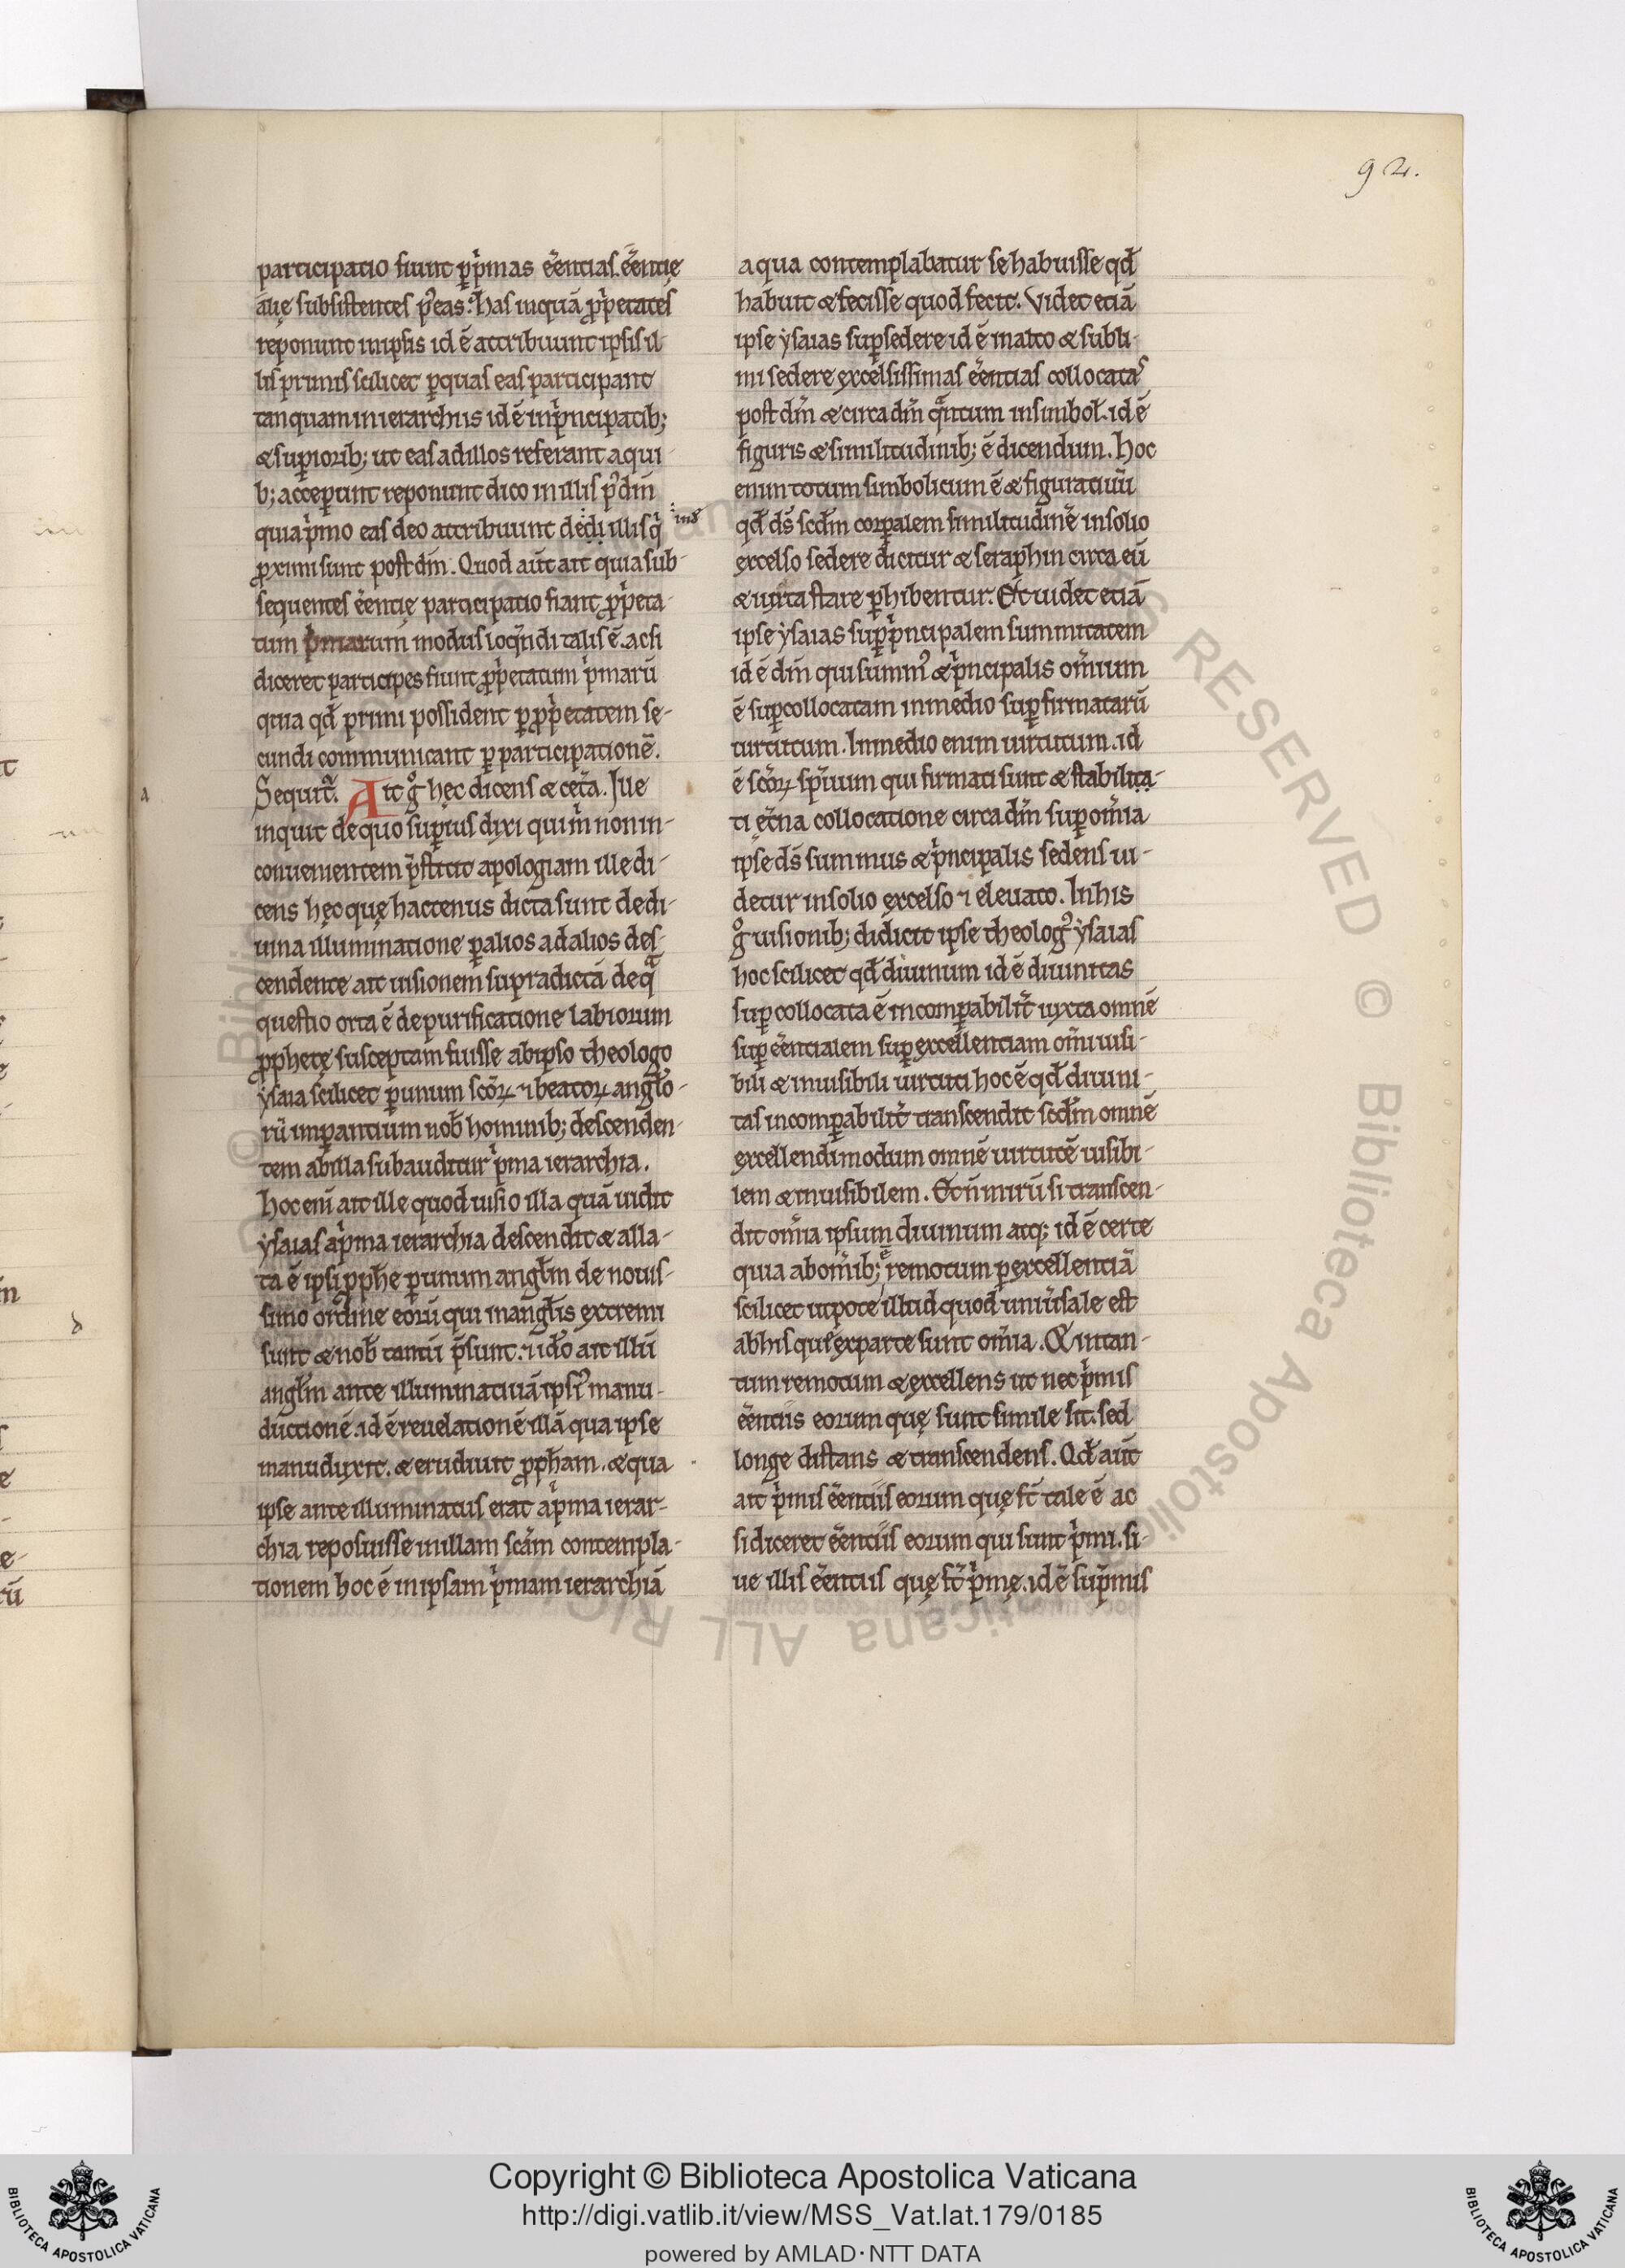 92.
participatio fiunt ꝑ pͥmas ēentias. ēentię
āūę subsistentes p̄ eas: Has inquā ꝓpͥetates
reponunt in ipsis id ē attribuunt ipsis il-
lis primis scilicet ꝑ quas eas participant
tanquam in ierarchiis id ē in pͥncipatib;
& suꝑiorib; ut eas ad illos referant a qui-
b; acceꝑunt reponunt dico in illis p̄ dm̄
quia pͥmo eas deo attribuunt dedi illis qͥ
ꝓximi sunt post dm̄. Quod aūt ait quia sub-
sequentes ēentię participatio fiant ꝓpͥeta-
tum pͥmarum modus loqn̄di talis ē. ac si
diceret participes fiunt ꝓpͥetatum pͥmarū
quia qđ primi possident ꝑ ꝓpͥetatem se-
cundi communicant ꝑ participationē.
Sequit᷑. Ait gͦ hęc dicens & cet̄a. Ille
inquit de quo suꝑius dixi qui m̄ non in-
conuenientem p̄stitit apologiam ille di-
cens hęc quę hactenus dicta sunt de di-
uina illuminatione ꝑ alios ad alios des-
cendente ait uisionem supradictā de qᷓ
questio orta ē de purificatione labiorum
ꝓphetę susceptam fuisse ab ipso theologo
ẏsaia scilicet ꝑ unum sc̄oꝝ ⁊ beatoꝝ angl̄o-
rū imꝑantium nob̄ hominib; descenden-
tem ab illa subauditur pͥma ierarchia.
Hoc eni ait ille quod uisio illa quā uidit
ẏsaias a pͥma ierarchia descendit & alla-
ta ē ipsi ꝓph̄e ꝑ unum angl̄m de nouis-
simo ordine eorū qui in angl̄is extremi
sunt & nob̄ tantū p̄sunt. ⁊ id̄o ait illū
angl̄m ante illuminatiuā ipsiꝰ manu-
ductionē. id ē reuelationē illā qua ipse
manuduxit. & erudiuit ꝓph̄am. & qua
ipse ante illuminatus erat a pͥma ierar-
chia reposuisse in illam sc̄am contempla-
tionem hoc ē in ipsam pͥmam ierarchiā
a qua contemplabatur se habuisse qđ
habuit & fecisse quod fecit. Videt etiā
ipse ẏsaias suꝑsedere id ē in alto & subli-
mi sedere excelsissimas ēentias collocatas
post dm̄ & circa dm̄ qᷓntum in simbol̄. id ē
figuris & similitudinib; ē dicendum. Hoc
enim totum simbolicum ē & figuratiuū
qđ ds̄ scd̄m corꝑalem similitudinē in solio
excelso sedere dicitur & seraphin circa eū
& iuxta stare ꝑhibentur. Et uidet etiā
ipse ẏsaias suꝑ pͥncipalem summitatem
id ē dm̄ qui summꝰ & pͥncipalis om̄ium
ē suꝑcollocatam in medio suꝑfirmatarū
uirtutum. In medio enim uirtutum. id
ē sc̄oꝝ sp̄iuum qui firmati sunt & stabilita-
ti ęt̄na collocatione circa dm̄ suꝑ om̄ia
ipse ds̄ summus & pͥncipalis sedens ui-
detur in solio excelso ⁊ eleuato. In his
gͦ uisionib; didicit ipse theologꝰ ẏsaias
hoc scilicet qđ diuinum id ē diuinitas
suꝑcollocata ē incomꝑabilit̄ iuxta omnē
suꝑēentialem suꝑexcellentiam om̄i uisi-
bili & inuisibili uirtuti hoc ē qđ diuini-
tas incomꝑabilit̄ transcendit scd̄m omnē
excellendi modum omnē uirtutē uisibi-
lem & inuisibilem. Et ū mirū si transcen-
dit om̄ia ipsum diuinum atq; id ē certe
quia ab om̄ib; ē remotum ꝑ excellentiā
scilicet utpote illud quod uniūsale est
ab his quę ex parte sunt om̄ia. & in tan-
tum remotum & excellens ut nec pͥmis
ēentiis eorum quę sunt simile sit. sed
longe distans & transcendens. Qđ aūt
ait pͥmis ēentiis eorum quę st̄ tale ē ac
si diceret ēentiis eorum qui sunt pͥmi. si-
ue illis ēentiis quę st̄ pͥmę. id ē supͥmis
Copyright © Biblioteca Apostolica Vaticana
http://digi.vatlib.it/view/MSS_Vat.lat.179/0185
powered by AMLAD·NTT DATA
BIBLIOTECA APOSTOLICA VATICANA
BIBLIOTECA APOSTOLICA VATICANA